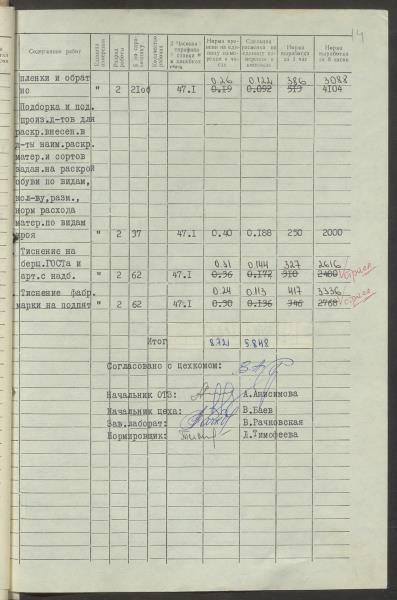 14
Содержание работ
Единица измерения
Разряд работы
№ по спра- вочнику
Количество рабочих
Часовая тарифная ставка
Норма вре- мени на еди- ницу измерения в ча- сах
Сдельная расценка на единицу измерения в копейках
Норма выработки за 1 час
Норма выработки за 8 часов
пленки и обрат 0.26 0.122 386 3088
но " 2 210б 47.1 0.19 0.092 513 4104
Подборка и под.
произ.д-тов для
раскр.внесен.в
д-ты наим.раскр.
матер.и сортов
задан.на раскрой
обуви по видам,
кол-ву,разм.,
норм расхода
матер.по видам
кроя " 2 37 47.1 0.40 0.188 250 2000
Тиснение на
берц.ГОСТа и 0.31 0.144 327 2616
арт.с надб. " 2 62 47.1 0.36 0.172 310 2480
Тиснение фабр. 0.24 0.113 417 3336
марки на подпят " 2 62 47.1 0.30 0.136 346 2768
Итог 8.721 5.848
Согласовано с цехкомом:
Начальник ОТЗ: А.Анисимова
Начальник цеха: В.Баев
Зав.лаборат: В.Рачковская
Нормировщик: Л.Тимофеева